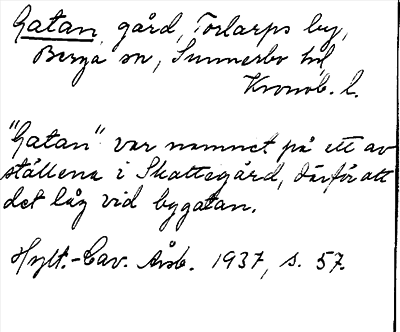 Gatan, gård, Torlarps by,
Berga sn, Sunnerbo hd
Kronob. l.
"Gatan" var namnet på ett av
ställena i Skattegård, därför att
det låg vid bygatan.
Hylt.-Cav. Årsb. 1937, s. 57.